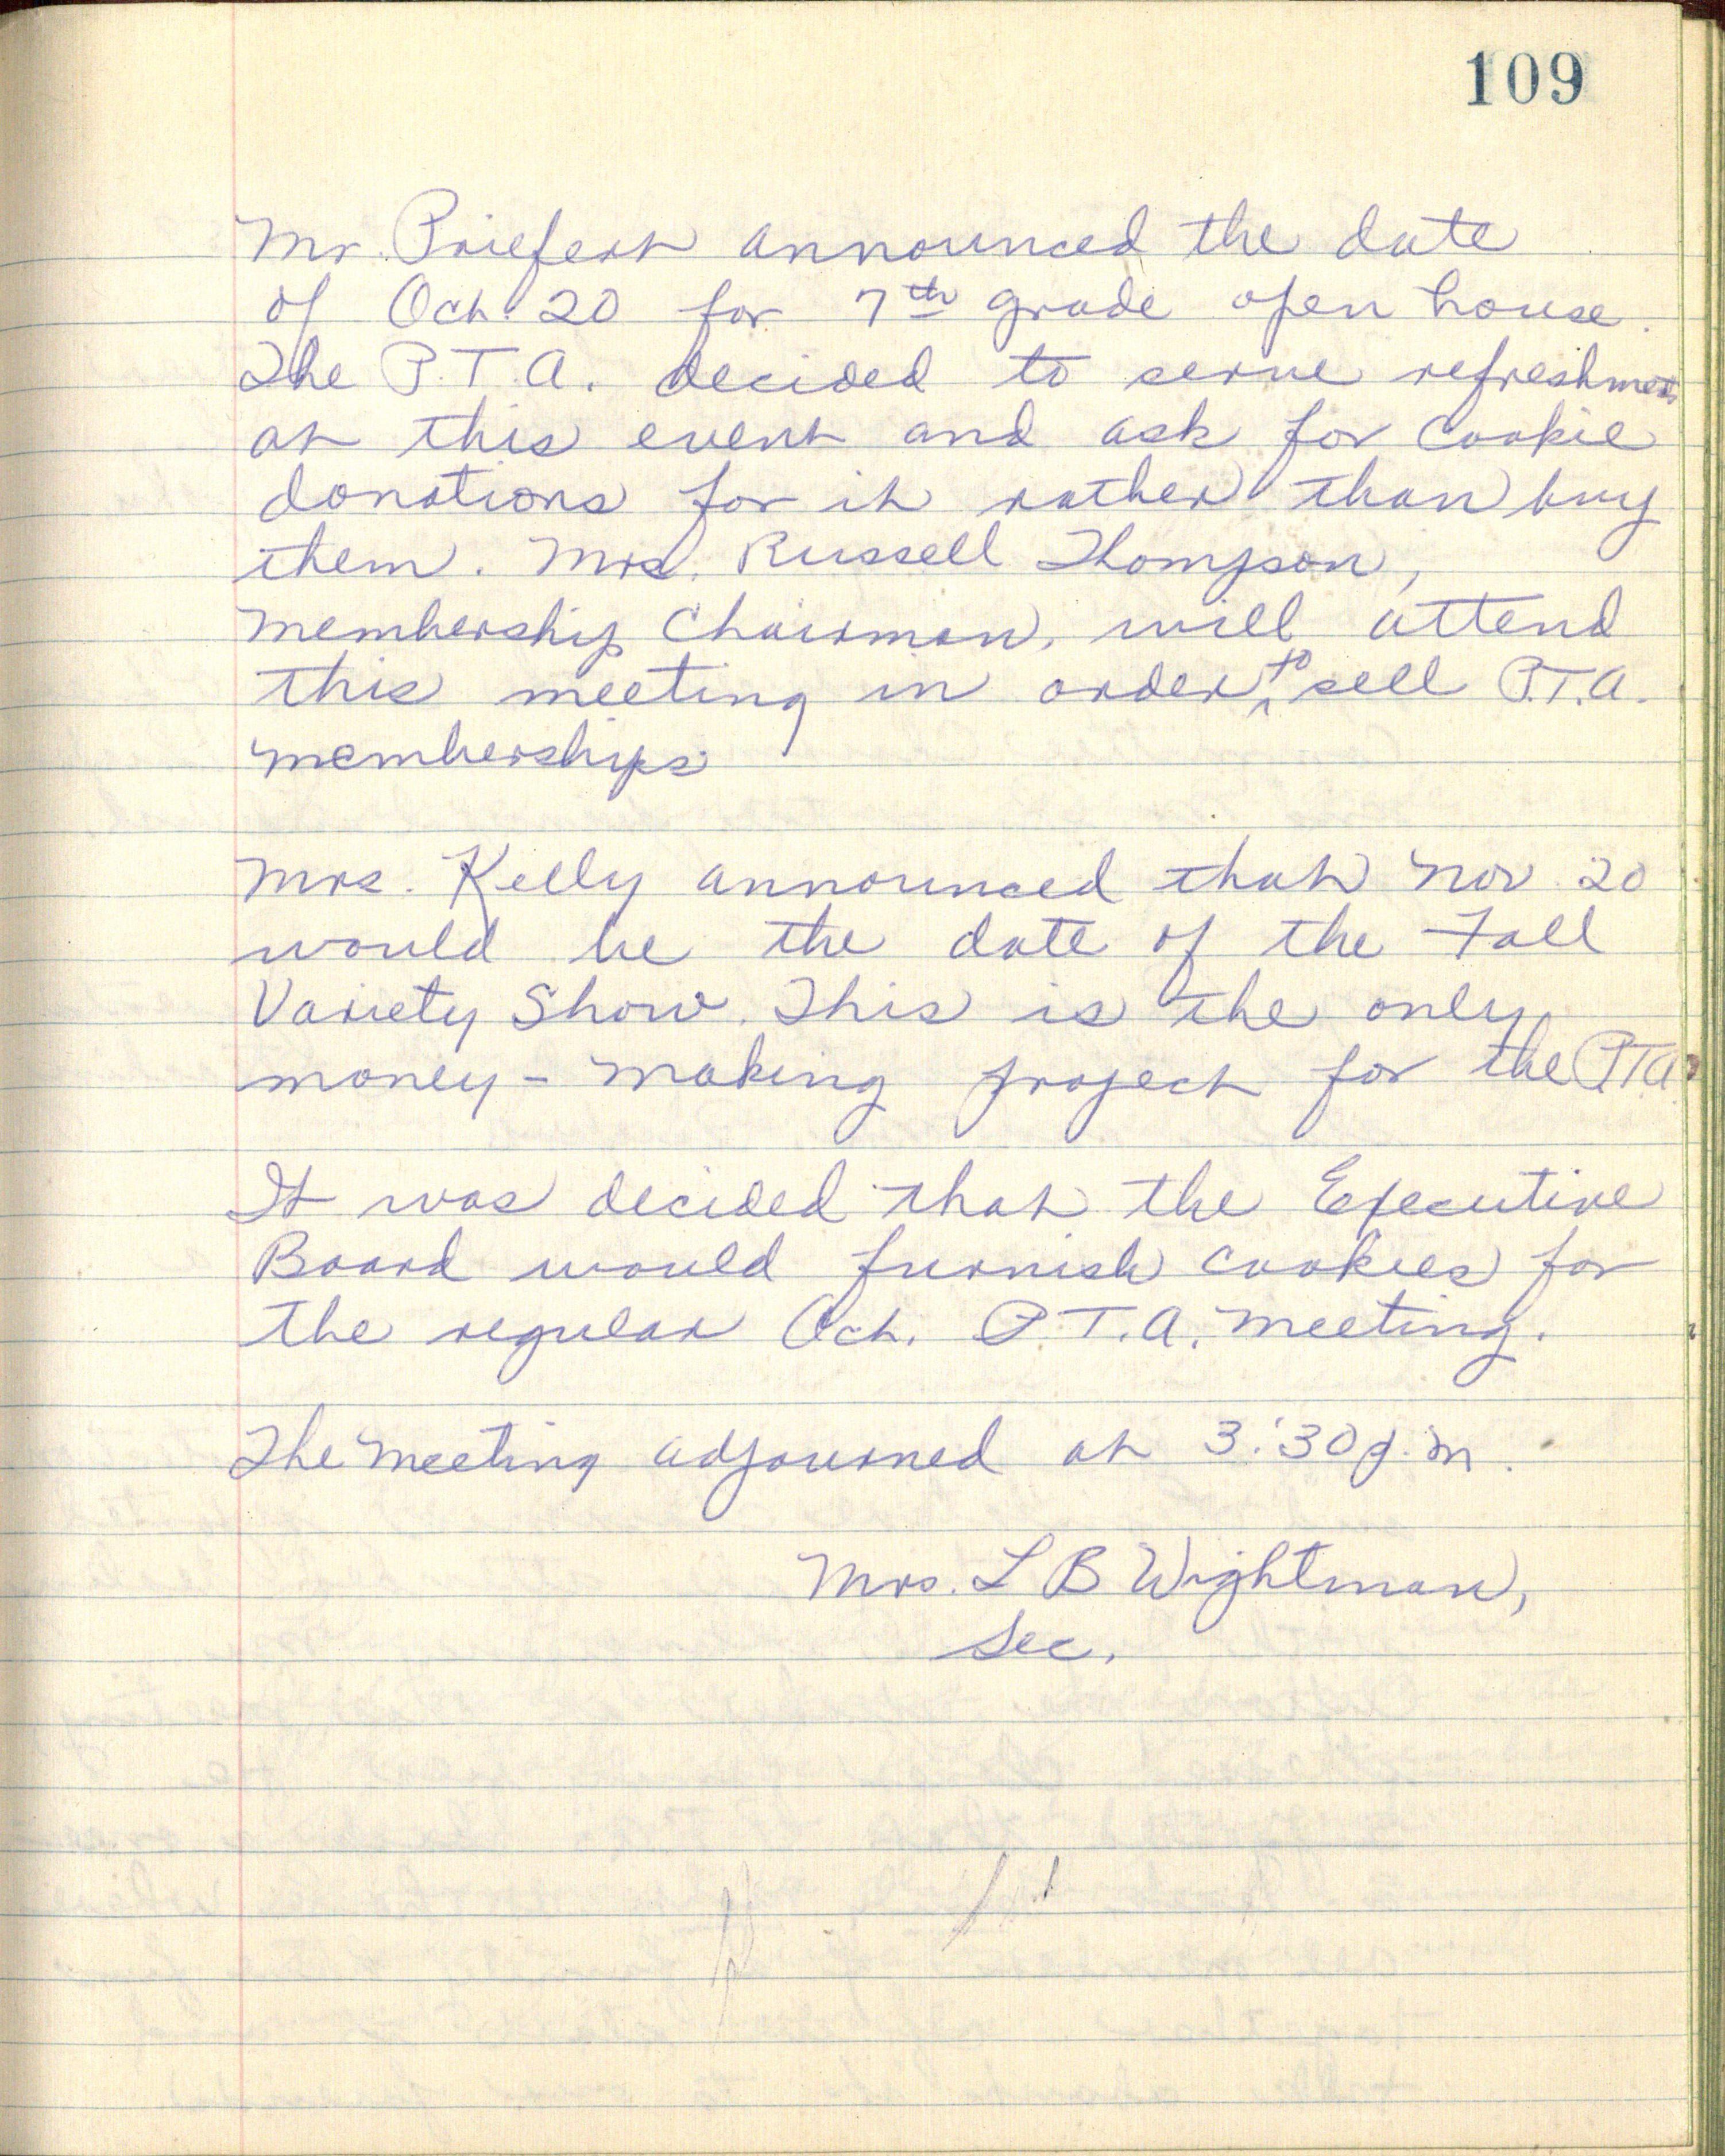 109
Mr. Priefert announced the date
of Oct. 20 for 7th grade open house.
The P.T.A. decided to serve refreshments
at this event and ask for cookie
donations for it rather than buy
them. Mrs. Russell Thompson,
membership chairman, will attend
this meeting in order to sell P.T.A.
memberships.
Mrs. Kelly announced that Nov. 20
would be the date of the Fall
Variety Show. This is the only
money-making project for the PTA.
It was decided that the Executive
Board would furnish cookies for
the regular Oct. P.T.A. meeting.
The meeting adjourned at 3:30 p.m.
Mrs. L B Wightman,
Sec.